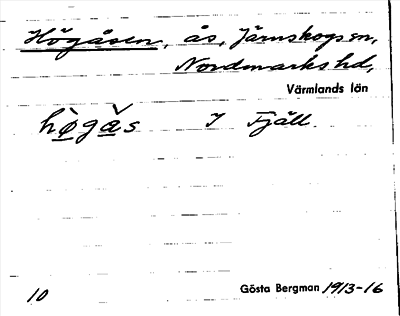 Högåsen, ås, Järnskogs sn,
Nordmarks hd,
Värmlands län
hø̀gås I Fjäll.
10 Gösta Bergman 1913-16